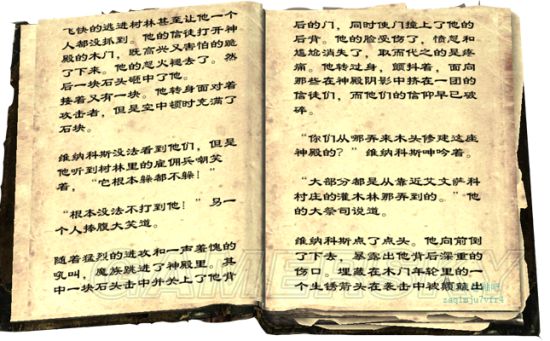 飞快的逃进树林甚至让他一个
人都没抓到。他的信徒打开神
殿的木门，既高兴又害怕的跪
了下来。他的怒火褪去了。然
后一块石头砸中了他。
接着又有一块。他转身面对着
攻击者，但是空中顿时充满了
石块。
维纳科斯没法看到他们，但是
他听到树林里的雇佣兵嘲笑
着，“它根本躲都不躲！”
“根本没法不打到他！”另一
个人捧腹大笑道。
随着猛烈的进攻和一声羞愧的
吼叫，魔族跳进了神殿里。其
中一块石头击中并关上了他背
后的门，同时使门撞上了他的
后背。他的脸受伤了，愤怒和
尴尬消失了，取而代之的是疼
痛。他转过身，颤抖着，面向
那些在神殿阴影中挤在一团的
信徒们，而他们的信仰早已破
碎。
“你们从哪弄来木头修建这座
神殿的？”维纳科斯呻吟着。
“大部分都是从靠近艾文萨科
村庄的灌木林那弄到的。”他
的大祭司说道。
维纳科斯点了点头。他向前倒
了下去，暴露出他背后深重的
伤口。埋藏在木门年轮里的一
个生锈箭头在袭击中被颠簸出
GAMERSKY
zaqimju7vfr4